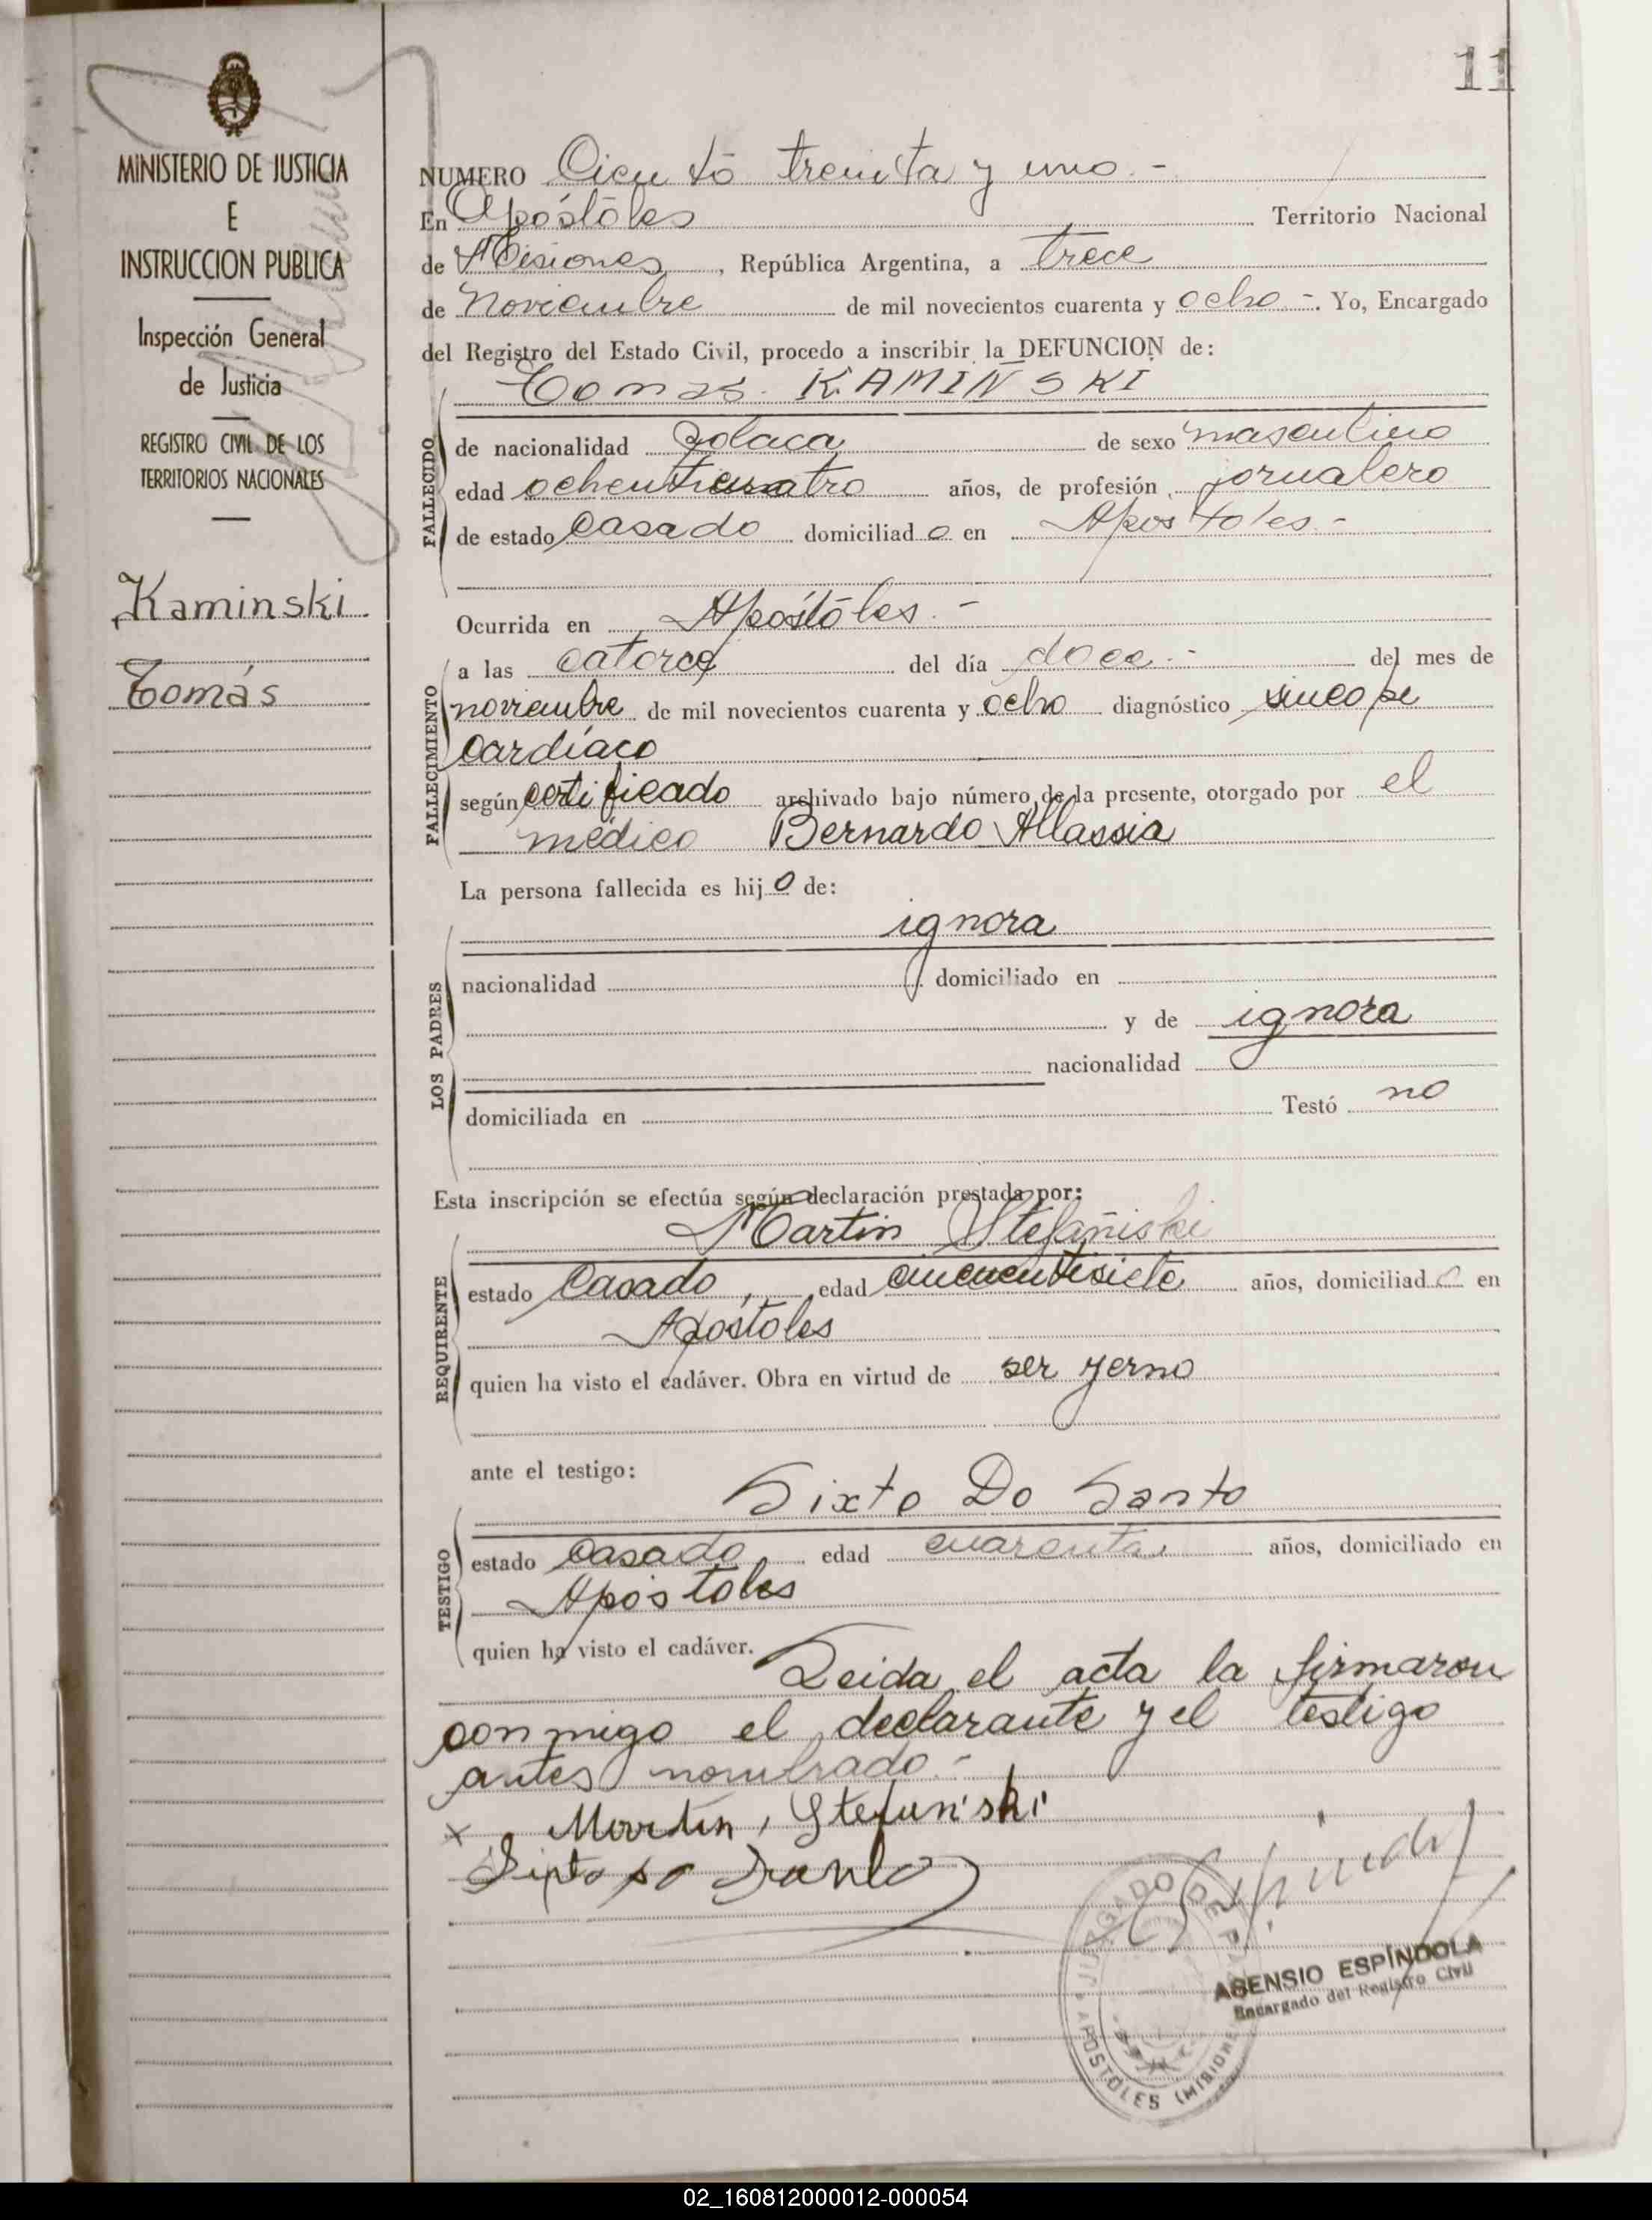 11
MINISTERIO DE JUSTICIA
E
INSTRUCCION PUBLICA
Inspección General
de Justicia
REGISTRO CIVIL DE LOS
TERRITORIOS NACIONALES
Kaminski
Tomás
NUMERO Ciento treinta y uno.-
En Apóstoles Territorio Nacional
de Misiones, República Argentina, a trece
de noviembre de mil novecientos cuarenta y ocho-. Yo, Encargado
del Registro del Estado Civil, procedo a inscribir la DEFUNCION de:
Tomas KAMIÑSKI
FALLECIDO
de nacionalidad Polaca de sexo masculino
edad ochenticuatro años, de profesión jornalero
de estado casado domiciliado en Apostoles.-
Ocurrida en Apóstoles.-
FALLECIMIENTO
a las catorce del día doce.- del mes de
noviembre de mil novecientos cuarenta y ocho diagnóstico sincope
cardíaco
según certificado archivado bajo número de la presente, otorgado por el
médico Bernardo Allassia
La persona fallecida es hijo de:
LOS PADRES
ignora
nacionalidad domiciliado en
y de ignora
nacionalidad
domiciliada en Testó no
Esta inscripción se efectúa según declaración prestada por:
REQUIRENTE
Martin Stefañiski
estado casado, edad cincuentisiete años, domiciliado en
Apóstoles
quien ha visto el cadáver. Obra en virtud de ser yerno
ante el testigo:
TESTIGO
Sixto Do Santo
estado casado edad cuarenta años, domiciliado en
Apóstoles
quien ha visto el cadáver. Leida el acta la firmaron
conmigo el declarante y el testigo
antes nombrado.-
x Martin, Stefuniski
JUZGADO DE PAZ
APOSTOLES (MISIONES
ASENSIO ESPÍNDOLA
Encargado del Registro Civil
02_160812000012-000054